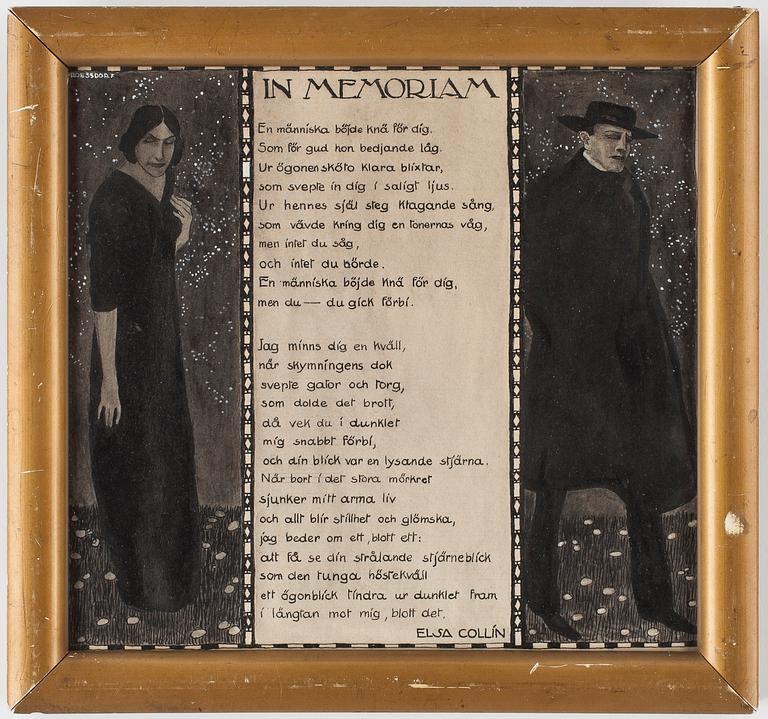 IN MEMORIAM
En människa böjde knä för dig.
Som för gud hon bedjande låg.
Ur ögonen sköto klara blixtar,
som svepte in dig i saligt ljus.
Ur hennes själ steg klagande sång,
som vävde kring dig en tonernas våg,
men intet du såg,
och intet du hörde.
En människa böjde knä för dig,
men du — du gick förbi.
Jag minns dig en kväll,
når skymningens dok
svepte gator och torg,
som dolde det brott,
då vek du i dunklet
mig snabbt förbi,
och din blick var en lysande stjärna.
Når bort i det stora mörkret
sjunker mitt arma liv
och allt blir stillhet och glömska,
jag beder om ett, blott ett:
att få se din strålande stjärneblick
som den tunga höstekväll
ett ögonblick tindra ur dunklet fram
i längtan mot mig, blott det.
ELSA COLLÍN